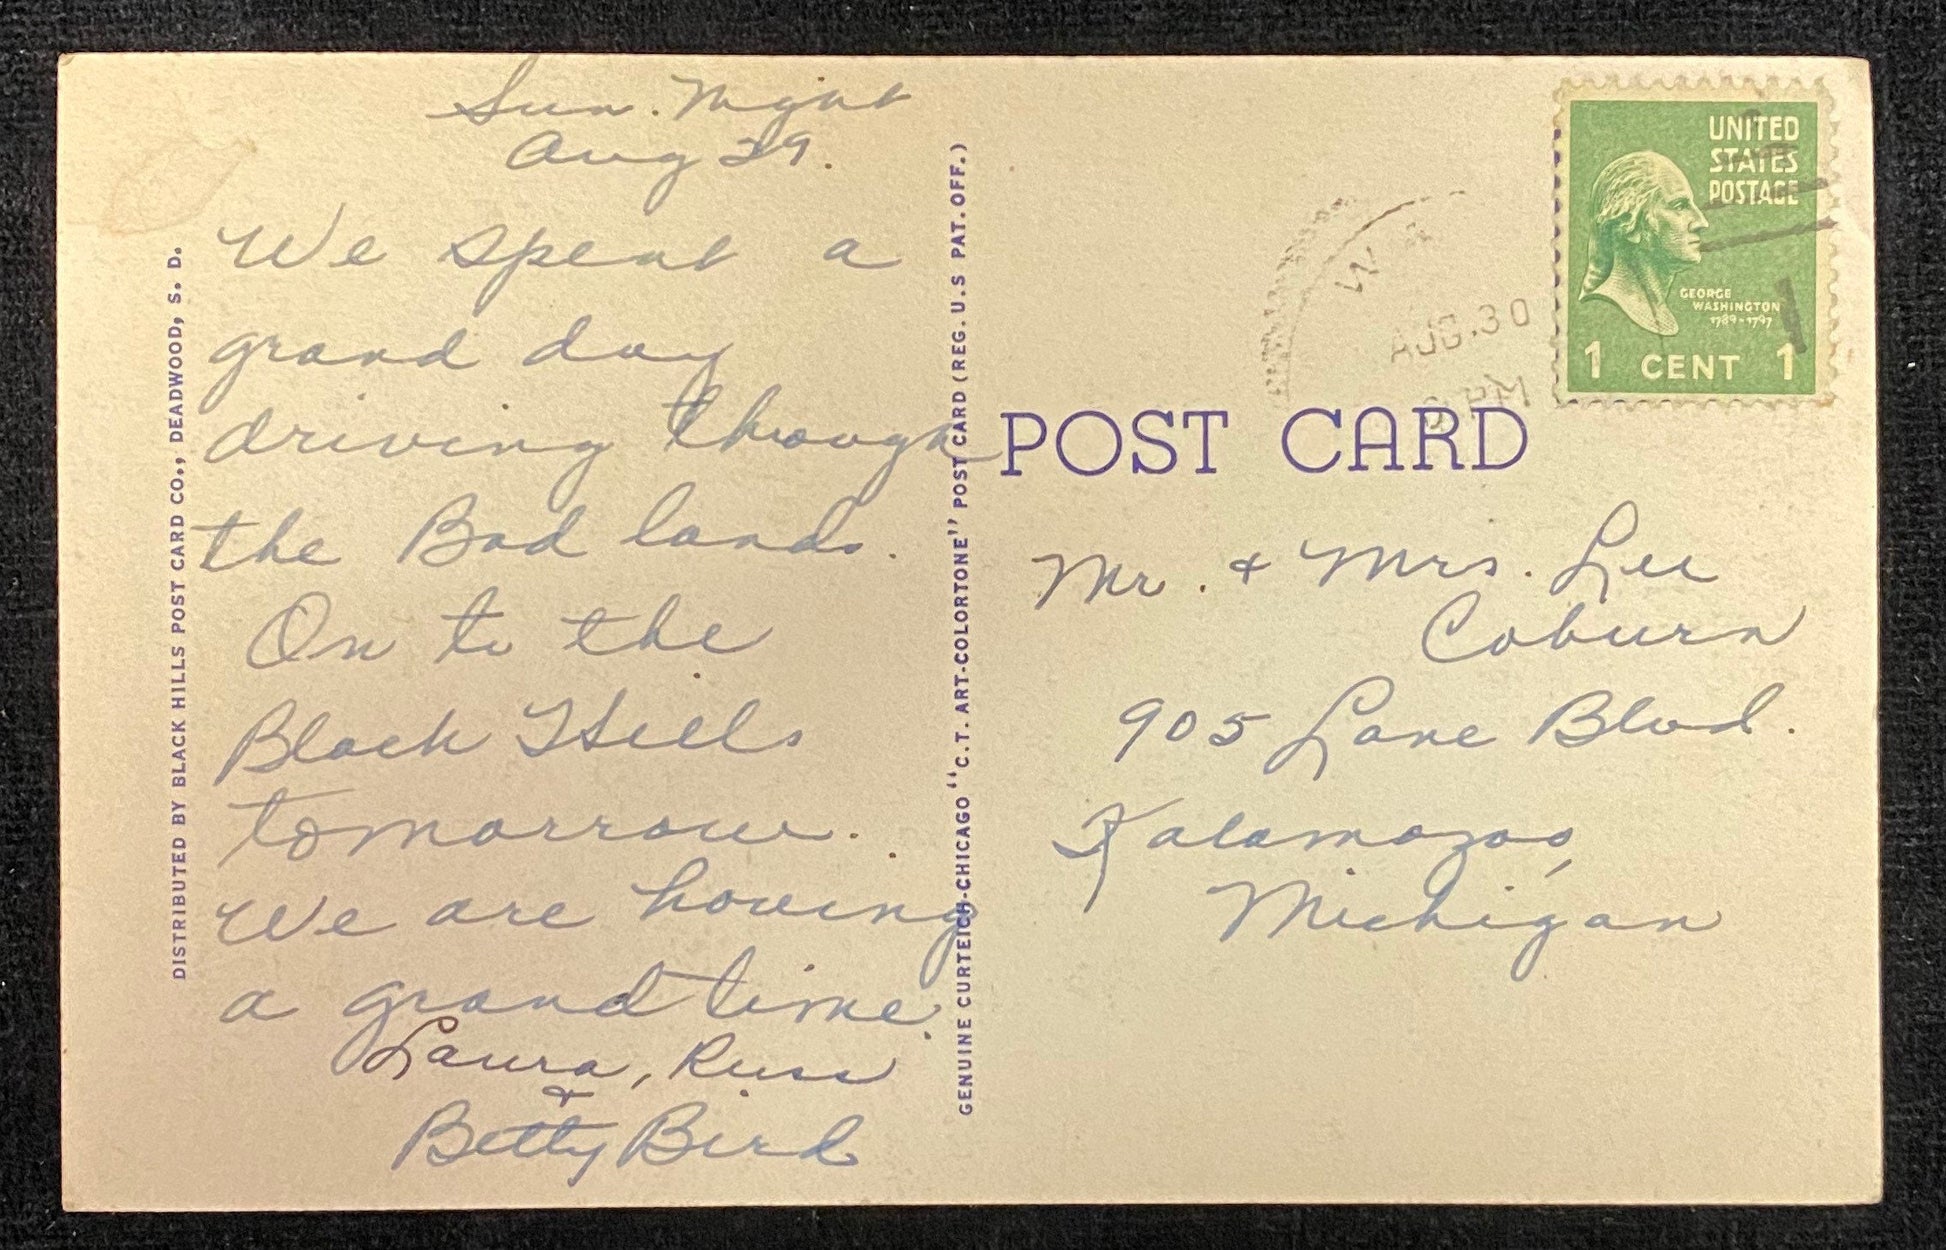 Sun. Night
Aug 29.
We spent a
grand day
driving through
the Bad lands.
On to the
Black Hills
tomorrow.
We are having
a grand time.
Laura, Russ
&
Betty Bird
DISTRIBUTED BY BLACK HILLS POST CARD CO., DEADWOOD, S. D.
GENUINE CURTEICH-CHICAGO "C.T. ART-COLORTONE" POST CARD (REG. U.S PAT. OFF.)
AUG. 30
PM
UNITED
STATES
POSTAGE
GEORGE
WASHINGTON
1789-1797
1 CENT 1
POST CARD
Mr. & Mrs. Lee
Coburn
905 Lane Blvd.
Kalamazoo,
Michigan